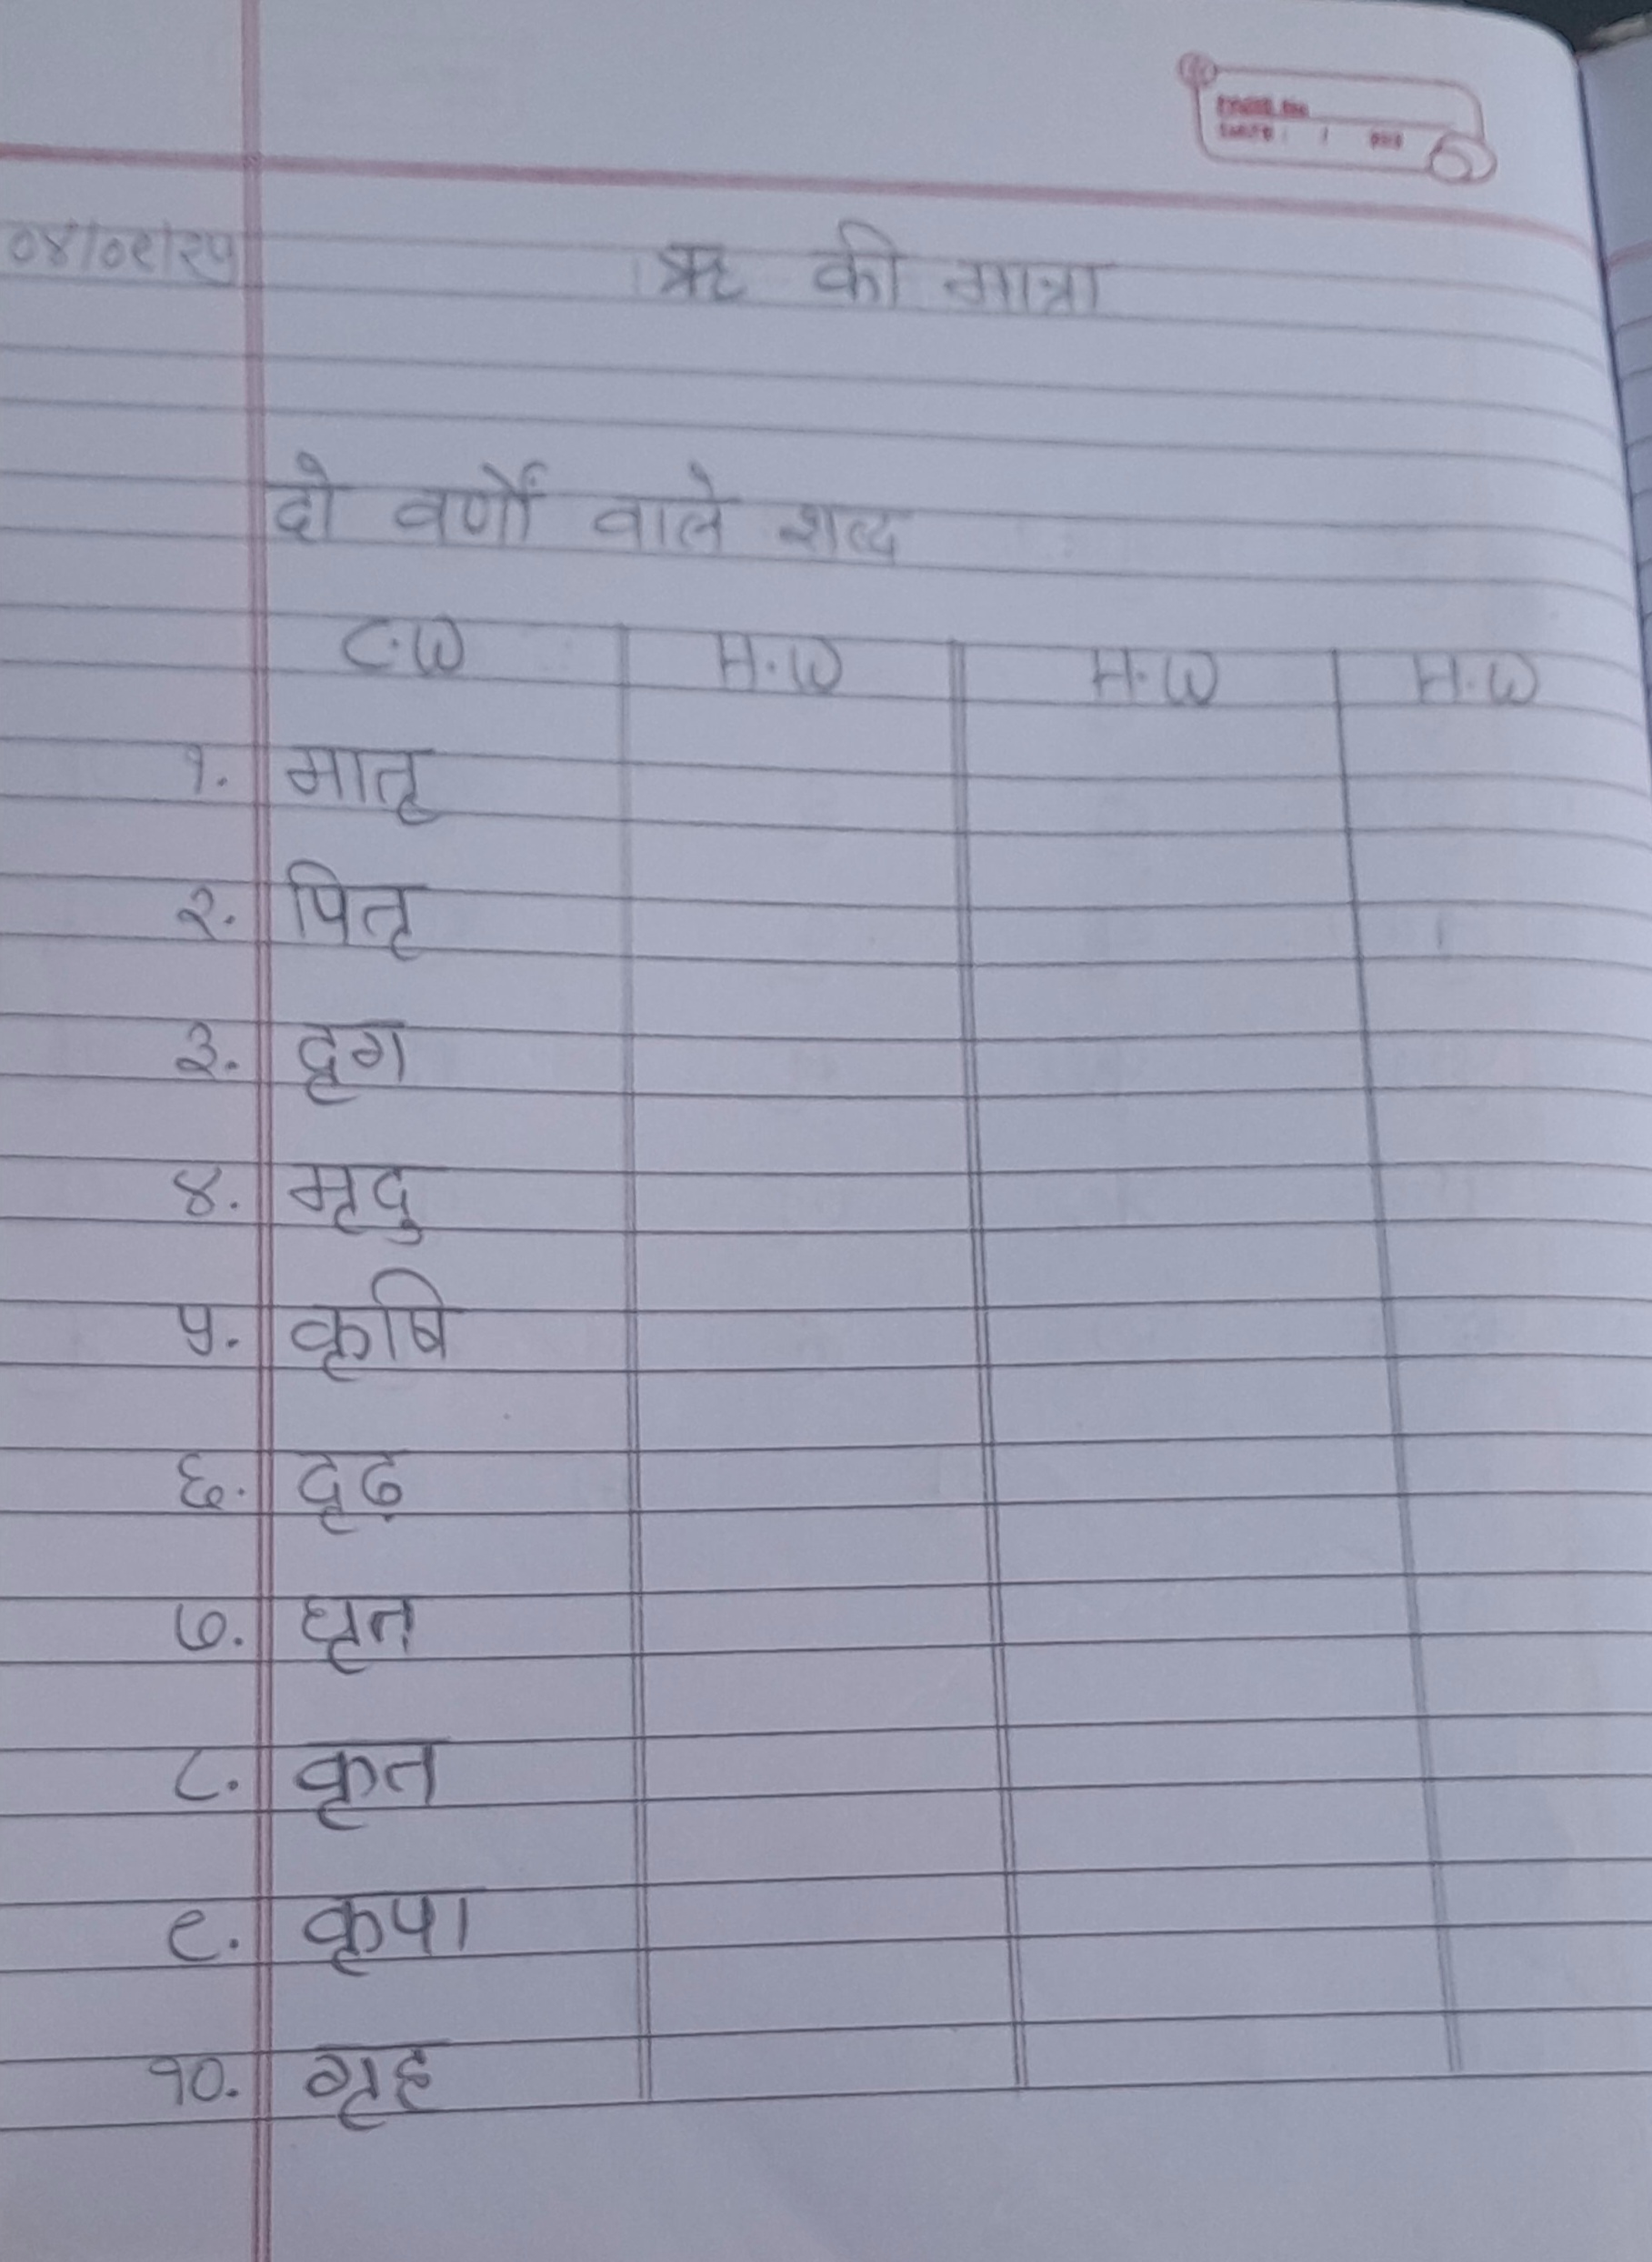 PAGE NO.
DATE: / /
०४/०९/२५ ऋ की मात्रा
दो वर्णों वाले शब्द
C.W H.W H.W H.W
१. मातृ
२. पितृ
३. दृग
४. मृदु
५. कृषि
६. दृढ़
७. घृत
८. कृत
९. कृपा
१०. गृह